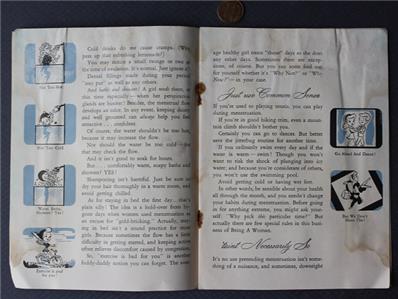 Cold drinks do me cause cramps. (Why
just up that something lovely!)
You may notice a small twinge or two at
the time of ovulation. It's normal. Just ignore it!
Dental fillings made during your period
"any pat" as well as any others.
And baths and showers! A girl needs them, at
this time especially—when her perspiration
glands are busier! Besides, the menstrual flow
develops an odor. In any event, keeping dainty
and well groomed can always help you feel
attractive . . . confident.
Of course, the water shouldn't be too hot,
because it may increase the flow.
Nor should the water be too cold—for
that may check the flow.
And it isn't good to soak for hours.
But . . . comfortably warm, soapy baths and
showers? YES!
Shampooing isn't harmful. Just be sure to
dry your hair thoroughly in a warm room, and
avoid getting chilled.
As for staying in bed the first day, that's
plain silly! The idea is a hold-over from by-
gone days when women used menstruation as
an excuse for "gold-bricking." Actually, stay-
ing in bed isn't a sound practice for most
girls. Because sometimes the flow has a little
difficulty in getting started, and keeping active
often relieves discomfort caused by congestion.
So, "exercise is bad for you" is another
fuddy-duddy notion you can forget. The aver-
Not Too Hot
Not Too Cold
Warm Baths,
Showers? Yes!
Exercise is good
for you!
age healthy girl meets "those" days as she does
any other days. Sometimes there are excep-
tions, of course. But you can soon find out
for yourself whether it's "Why Not?" or "Why
Now?"—in your case.
Just use Common Sense
If you're used to playing tennis, you can play
during menstruation.
If you're in good hiking trim, even a moun-
tain climb shouldn't bother you.
Certainly you can go to dances. But better
save the jitterbug routine for another time.
If you ordinarily swim every day and if the
water is warm—swim! Though you won't
want to risk the shock of plunging into icy
water; and because you're considerate of others,
you won't use the swimming pool.
Avoid getting cold or having wet feet.
In other words, be sensible about your health
all through the month, and you needn't change
your habits during menstruation. Before going
in for anything extreme, you might ask your-
self "Why pick this particular time?" But
actually there are few special rules in this busi-
ness of Being A Woman.
'taint Necessarily So
It's no use pretending menstruation isn't some-
thing of a nuisance, and sometimes, downright
Go Ahead And Dance!
But We Don't
Mean This!